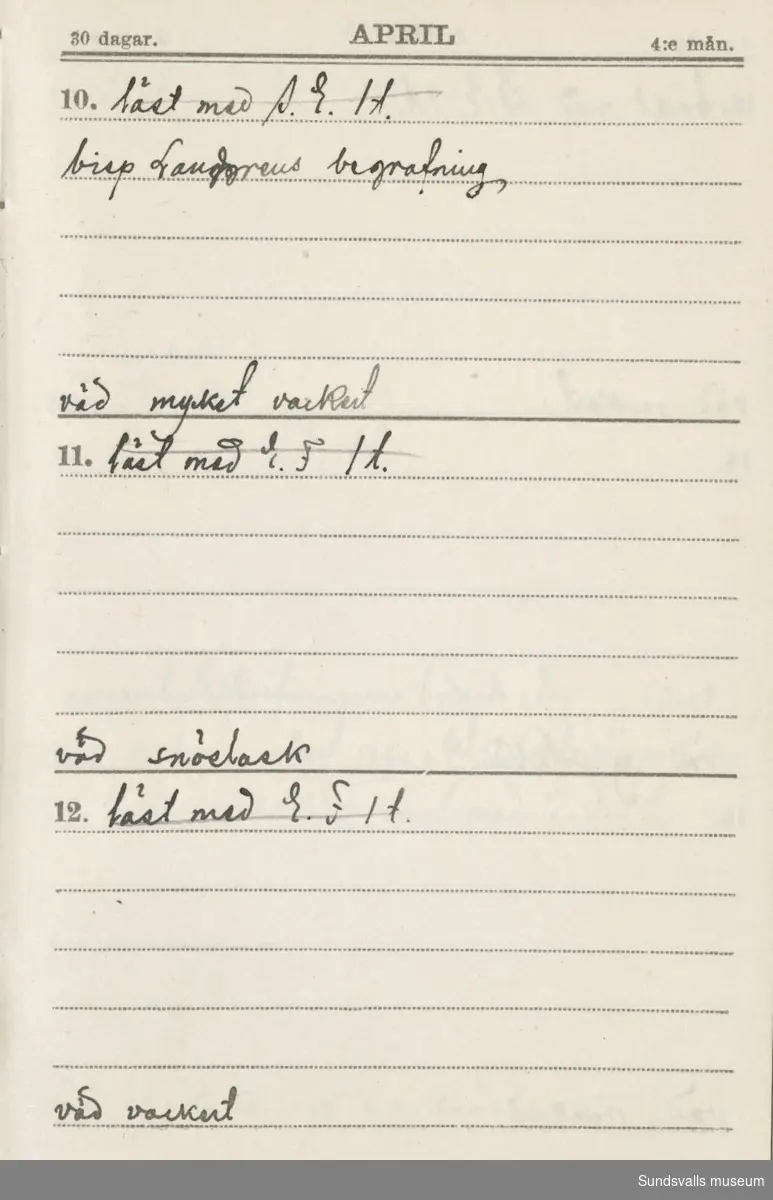 30 dagar. APRIL 4:e mån.
10. läst med S. E. 1 t.
bisp Landgrens begrafning,
väd mycket vackert
11. läst med E. F 1 t.
väd snöslask
12. läst med E. F 1 t.
väd vackert
Sundsvalls museum